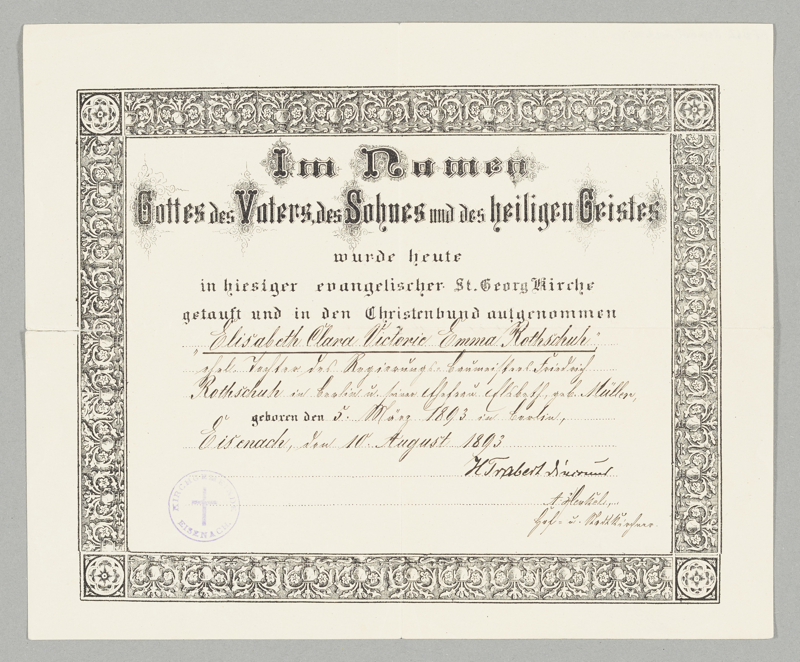 Im Namen
Gottes des Vaters, des Sohnes und des heiligen Geistes
wurde heute
in hiesiger evangelischer St. Georg Kirche
getauft und in den Christenbund aufgenommen
"Elisabeth Clara Victorie Emma Rothschuh"
ehel. Tochter des Regierungs-baumeisters Friedrich
Rothschuh in Berlin u. seiner Ehefrau Elsbeth, geb. Müller,
geboren den 5. März 1893 in Berlin,
Eisenach, den 10. August 1893
H Trabert Diaconus
A. Henkel,
Hof- u. Stadtkirchner.
EISENACH